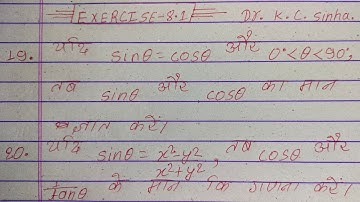 EXERCISE-8.1 Dr. K. C. Sinha.
19. यदि sinθ = cosθ और 0°<θ<90°,
तब sinθ और cosθ का मान
ज्ञात करें।
20. यदि sinθ = x²-y²/x²+y², तब cosθ और
1/tanθ के मान कि गणना करें।